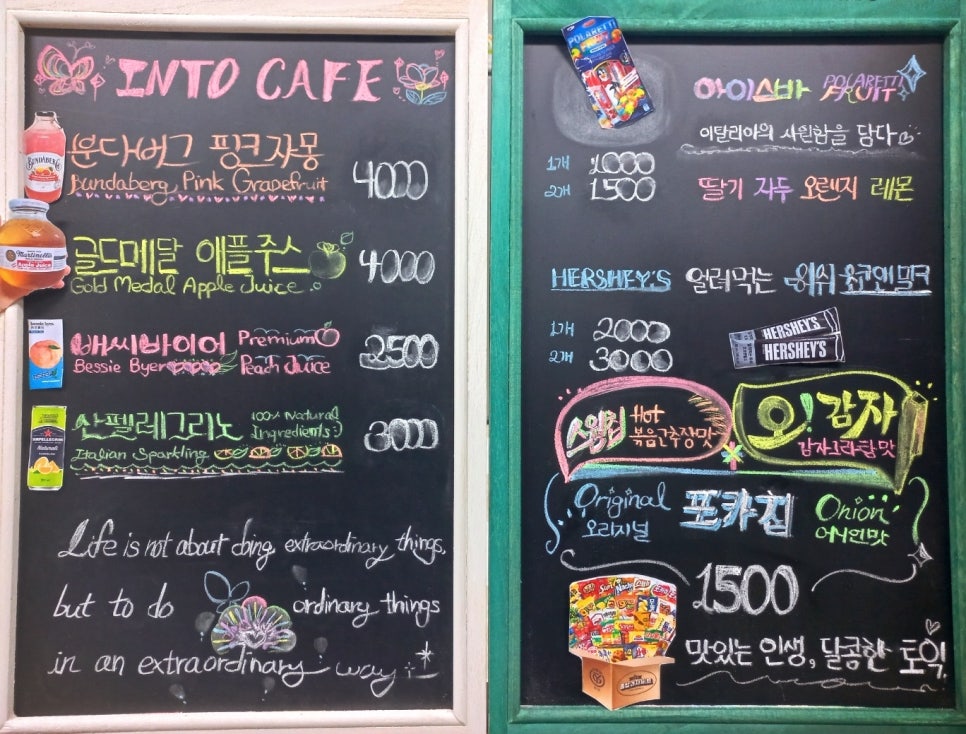 INTO CAFE
분다버그 핑크자몽
Bundaberg Pink Grapefruit
4000
BUNDABERG
Martinelli's
Apple Juice
글드메달 애플주스
Gold Medal Apple Juice
4000
배씨바이어 Premium
Bessie Byer Peach Juice
2500
산펠레그리노 100% Natural
Ingredients
Italian Sparkling
3000
Life is not about doing extraordinary things,
but to do ordinary things
in an extraordinary way
POLARETTI
FRUIT
아이스바 POLARETTI
FRUIT
이탈리아의 시원함을 담다
1개 1000
2개 1500
딸기 자두 오렌지 레몬
HERSHEY'S 얼려먹는 쉬쉬 초코앤밀크
1개 2000
2개 3000
HERSHEY'S
HERSHEY'S
스윙칩 Hot
볶음고추장맛
오!감자
감자그라탕맛
Original
오리지널
포카칩
Onion
어니언맛
1500
맛있는 인생, 달콤한 토익